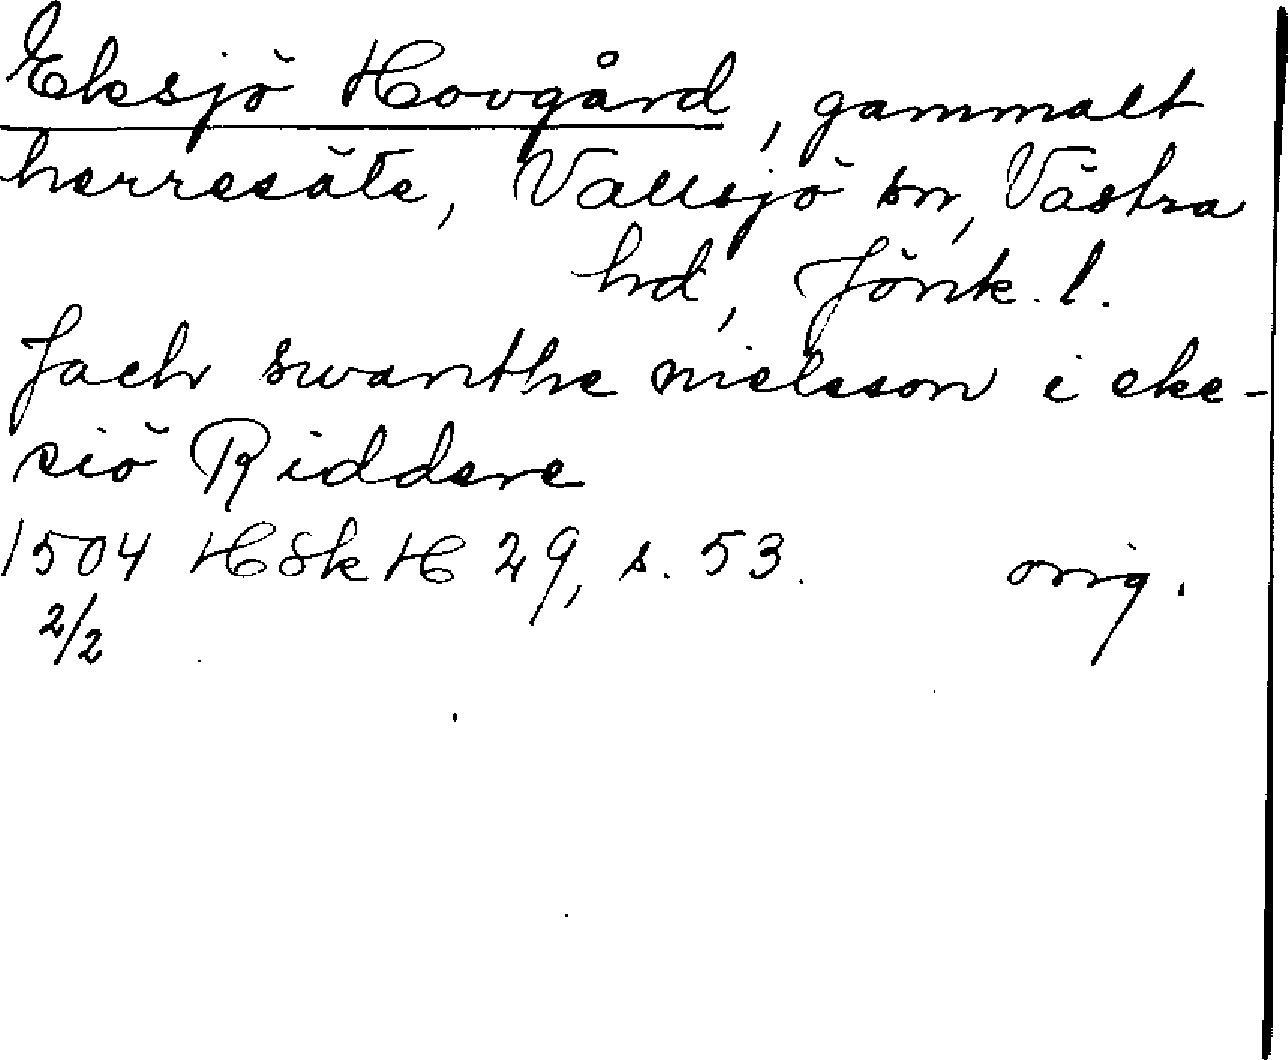 Eksjö Hovgård, gammalt
herresäte, Vallsjö sn, Västra
hd, Jönk. l.
Jach swanthe nielsson i eke-
siö Riddere
1504 HSkH 29, s. 53. orig.
2/2